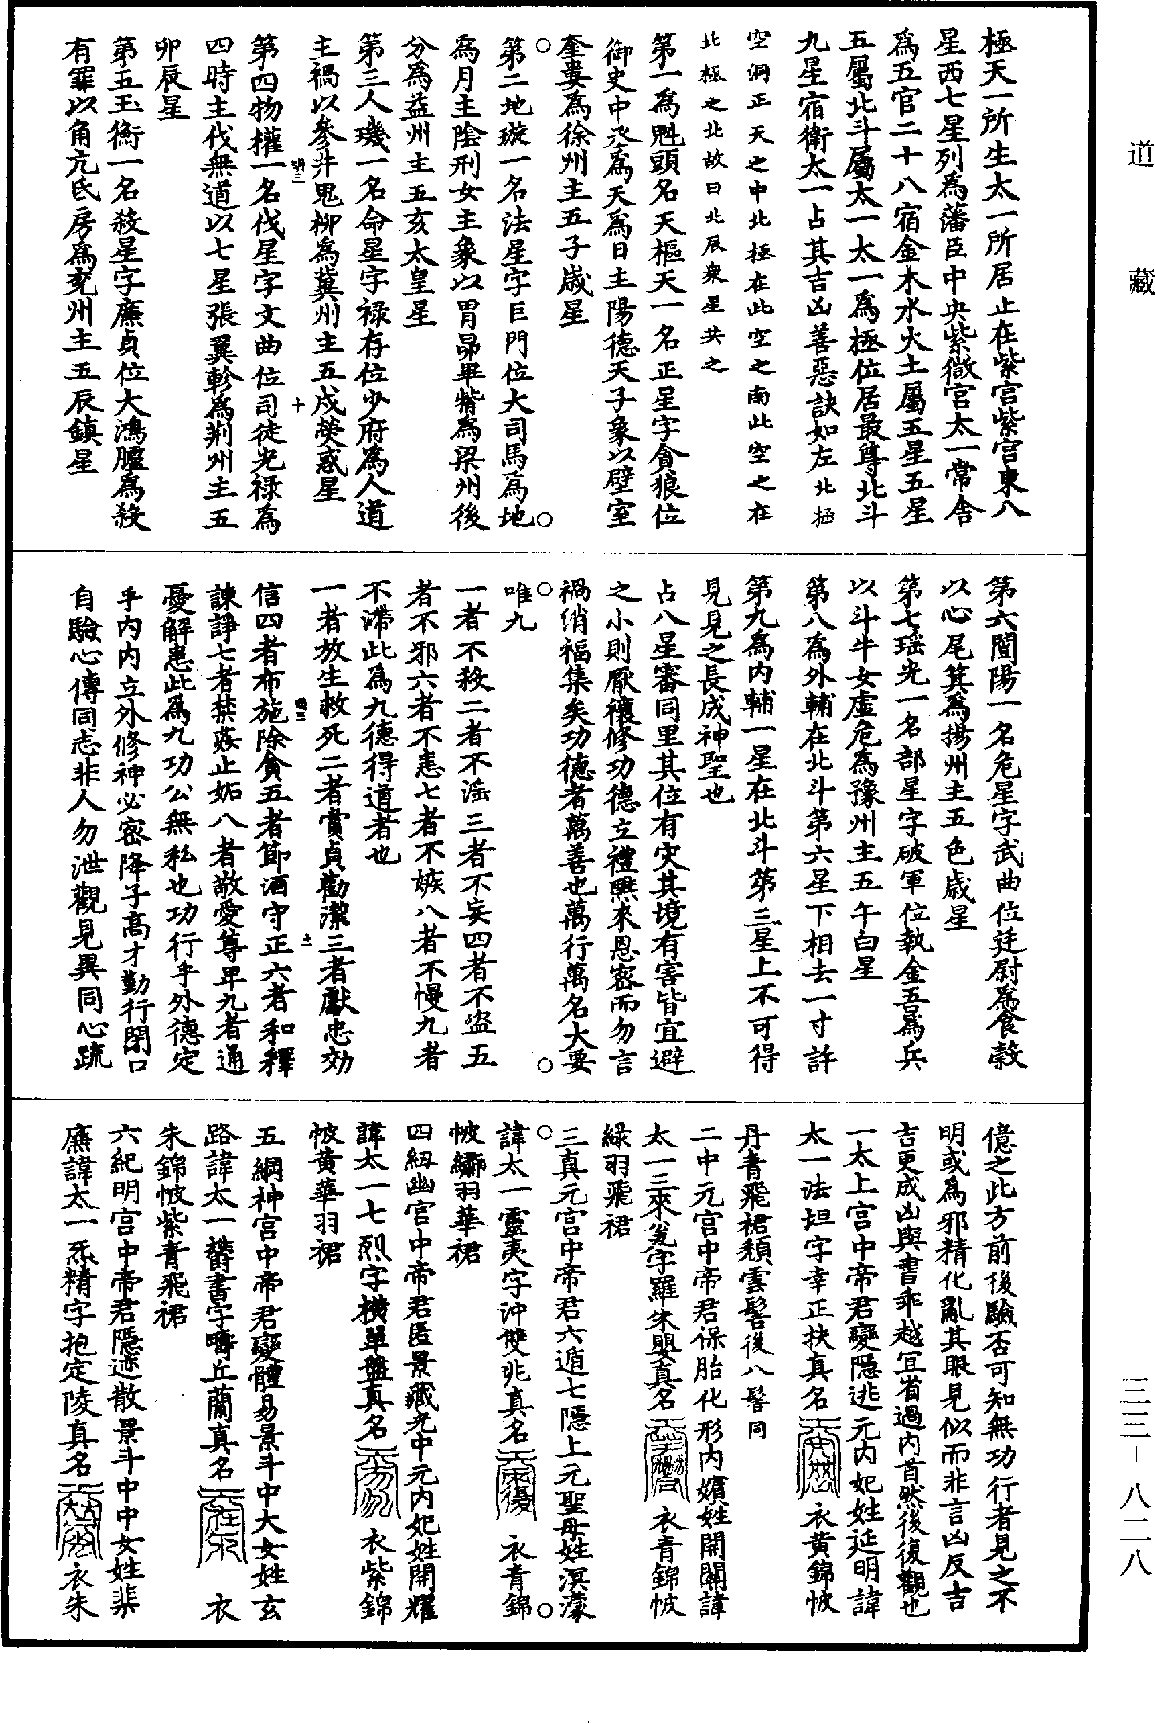 道藏
三三－八二八
極天一所生太一所居止在紫宮紫宮東八
星西七星列為藩臣中央紫微宮太一常舍
為五官二十八宿金木水火土屬五星五星
五屬北斗屬太一太一為極位居最尊北斗
九星宿衛太一占其吉凶善惡訣如左北極
空洞正天之中北極在此空之南此空之在
北極之北故曰北辰衆星共之
第一為魁頭名天樞天一名正星字貪狼位
御史中丞為天為日主陽德天子象以壁室
奎婁為徐州主五子歲星
第二地璇一名法星字巨門位大司馬為地
為月主陰刑女主象以胃昴畢觜為梁州後
分為益州主五亥太皇星
第三人璣一名命星字祿存位少府為人道
主禍以參井鬼柳為冀州主五戌熒惑星
第四物權一名伐星字文曲位司徒光祿為
四時主伐無道以七星張翼軫為荊州主五
卯辰星
第五玉衡一名殺星字廉貞位大鴻臚為殺
有罪以角亢氐房為兗州主五辰鎮星
第六闓陽一名危星字武曲位廷尉為食穀
以心尾箕為揚州主五色歲星
第七瑤光一名部星字破軍位執金吾為兵
以斗牛女虛危為豫州主五午白星
第八為外輔在北斗第六星下相去一寸許
第九為內輔一星在北斗第三星上不可得
見見之長成神聖也
占八星審同里其位有灾其境有害皆宜避
之小則厭禳修功德立禮興來恩密而勿言
禍綃福集矣功德者萬善也萬行萬名大要
唯九
一者不殺二者不淫三者不妄四者不盜五
者不邪六者不恚七者不嫉八者不慢九者
不滯此為九德得道者也
一者放生救死二者賞貞勸潔三者獻忠効
信四者布施除貪五者節酒守正六者和釋
諫諍七者禁姦止妬八者敬愛尊卑九者通
憂解患此為九功公無私也功行乎外德定
乎內內立外修神必密降子高才勤行閉口
自驗心傳同志非人勿泄觀見異同心疏
億之此方前後驗否可知無功行者見之不
明或為邪精化亂其眼見似而非言凶反吉
吉更成凶與書乖越宜省過內首然後復觀也
一太上宮中帝君變隱逃元內妃姓延明諱
太一法坦字幸正扶真名 衣黃錦帔
丹青飛裙頹雲髻後八髻同
二中元宮中帝君保胎化形內嬪姓開闢諱
太一三來字羅朱嬰真名 衣青錦帔
綠羽飛裙
三真元宮中帝君六遁七隱上元聖母姓溟濛
諱太一靈夷字沖雙兆真名 衣青錦
帔繡羽華裙
四紐幽宮中帝君匿景藏光中元內妃姓開耀
諱太一七烈字橫單盤真名 衣紫錦
帔黃華羽裙
五綱神宮中帝君變體易景斗中大女姓玄
路諱太一書字疇丘蘭真名 衣
朱錦帔紫青飛裙
六紀明宮中帝君隱迹散景斗中中女姓棐
廉諱太一炁精字抱定陵真名 衣朱